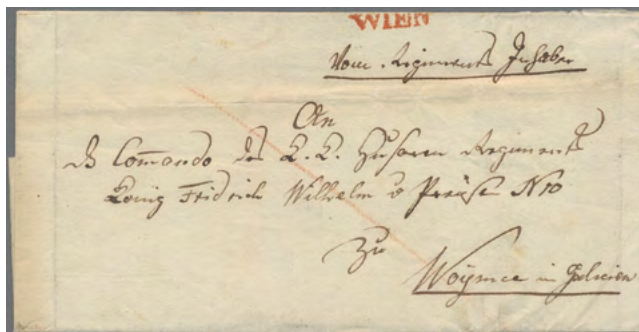 WIEN
Vom Regiments Inhaber
An
Commando des K. K. Husaren Regiments
König Fridrich Wilhelm v Preußen N 10
Zu
in Galicien